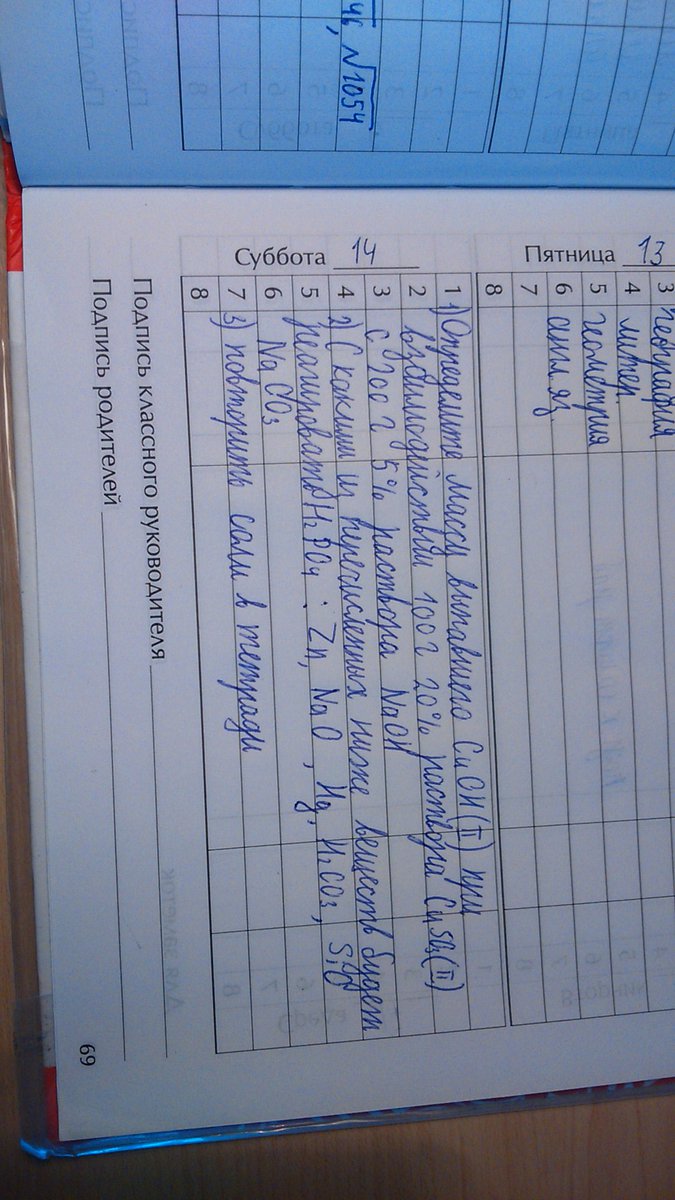 46, √1054
Пятница 13
3 География
4 литер
5 геометрия
6 англ яз.
7
8
Суббота 14
1 1) Определите массу выпавшего CuOH(II) при
2 взаимодействии 100г 20% раствора CuSO4(II)
3 с 200 г 5% раствора NaOH
4 2) С какими из перечисленных ниже веществ будет
5 реагировать H2PO4 : Zn, NaO, Hg, H2CO3, SiO
6 NaCO3
7 3) повторить соли в тетради
8
Подпись классного руководителя
Подпись родителей
69